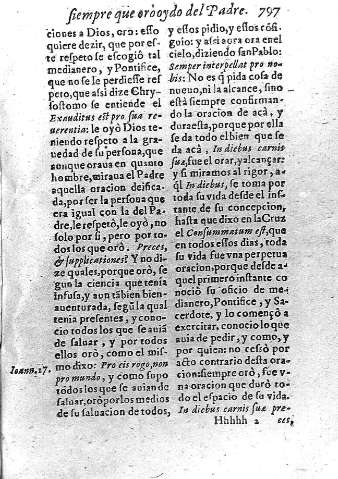 siempre que orò oydo del Padre. 797
ciones a Dios, orò: esso
quiere dezir, que por es-
te respeto se escogiò tal
medianero, y Pontifice,
que no se le perdiesse res
peto, que assi dize Chry-
sostomo se entiende el
Exauditus est pro sua re-
uerentia: le oyò Dios te-
niendo respeto a la gra-
uedad de su persona, que
aunque oraua en quanto
hombre, miraua el Padre
aquella oracion deifica-
da, por ser la persona que
era igual con la del Pa-
dre, le respetò, le oyò, no
solo por si, pero por to-
dos los que orò. Preces,
& supplicationes? Y no di-
ze quales, porque orò, se
gun la ciencia que tenia
infusa, y aun tãbien bien-
auenturada, segũ la qual
tenia presentes, y cono-
cio todos los que se auiã
de saluar, y por todos
ellos orò, como el mis-
mo dixo: Pro eis rogo, non
pro mundo, y como supo
todos los que se auian de
saluar, orò por los medios
de su saluacion de todos,
Ioann. 17.
y essos pidio, y essos cõsi-
guio: y assi aora està en el
cielo, diziendo san Pablo:
Semper interpellat pro no-
bis: No es q̃ pida cosa de
nueuo, ni la alcance, sino
està siempre confirman-
do la oracion de acà, y
dura esta, porque por ella
se da todo el bien que se
da acà. In diebus carnis
suæ, fue el orar, y alcançar:
y si miramos al rigor, a-
q̃l In diebus, se toma por
toda su vida desde el ins-
tante de su concepcion,
hasta que dixo en la Cruz
el Consummatum est, que
en todos essos dias, toda
su vida fue vna perpetua
oracion, porque desde a-
quel primero instante co
nociò su oficio de me-
dianero, Pontifice, y Sa-
cerdote, y lo começò a
exercitar, conocio lo que
auia de pedir, y como, y
por quien: no cessò por
acto contrario desta ora-
cion; siempre orò, fue v-
na oracion que durò to-
do el espacio de su vida.
In diebus carnis suæ pre-
Hhhhh 2 ces,